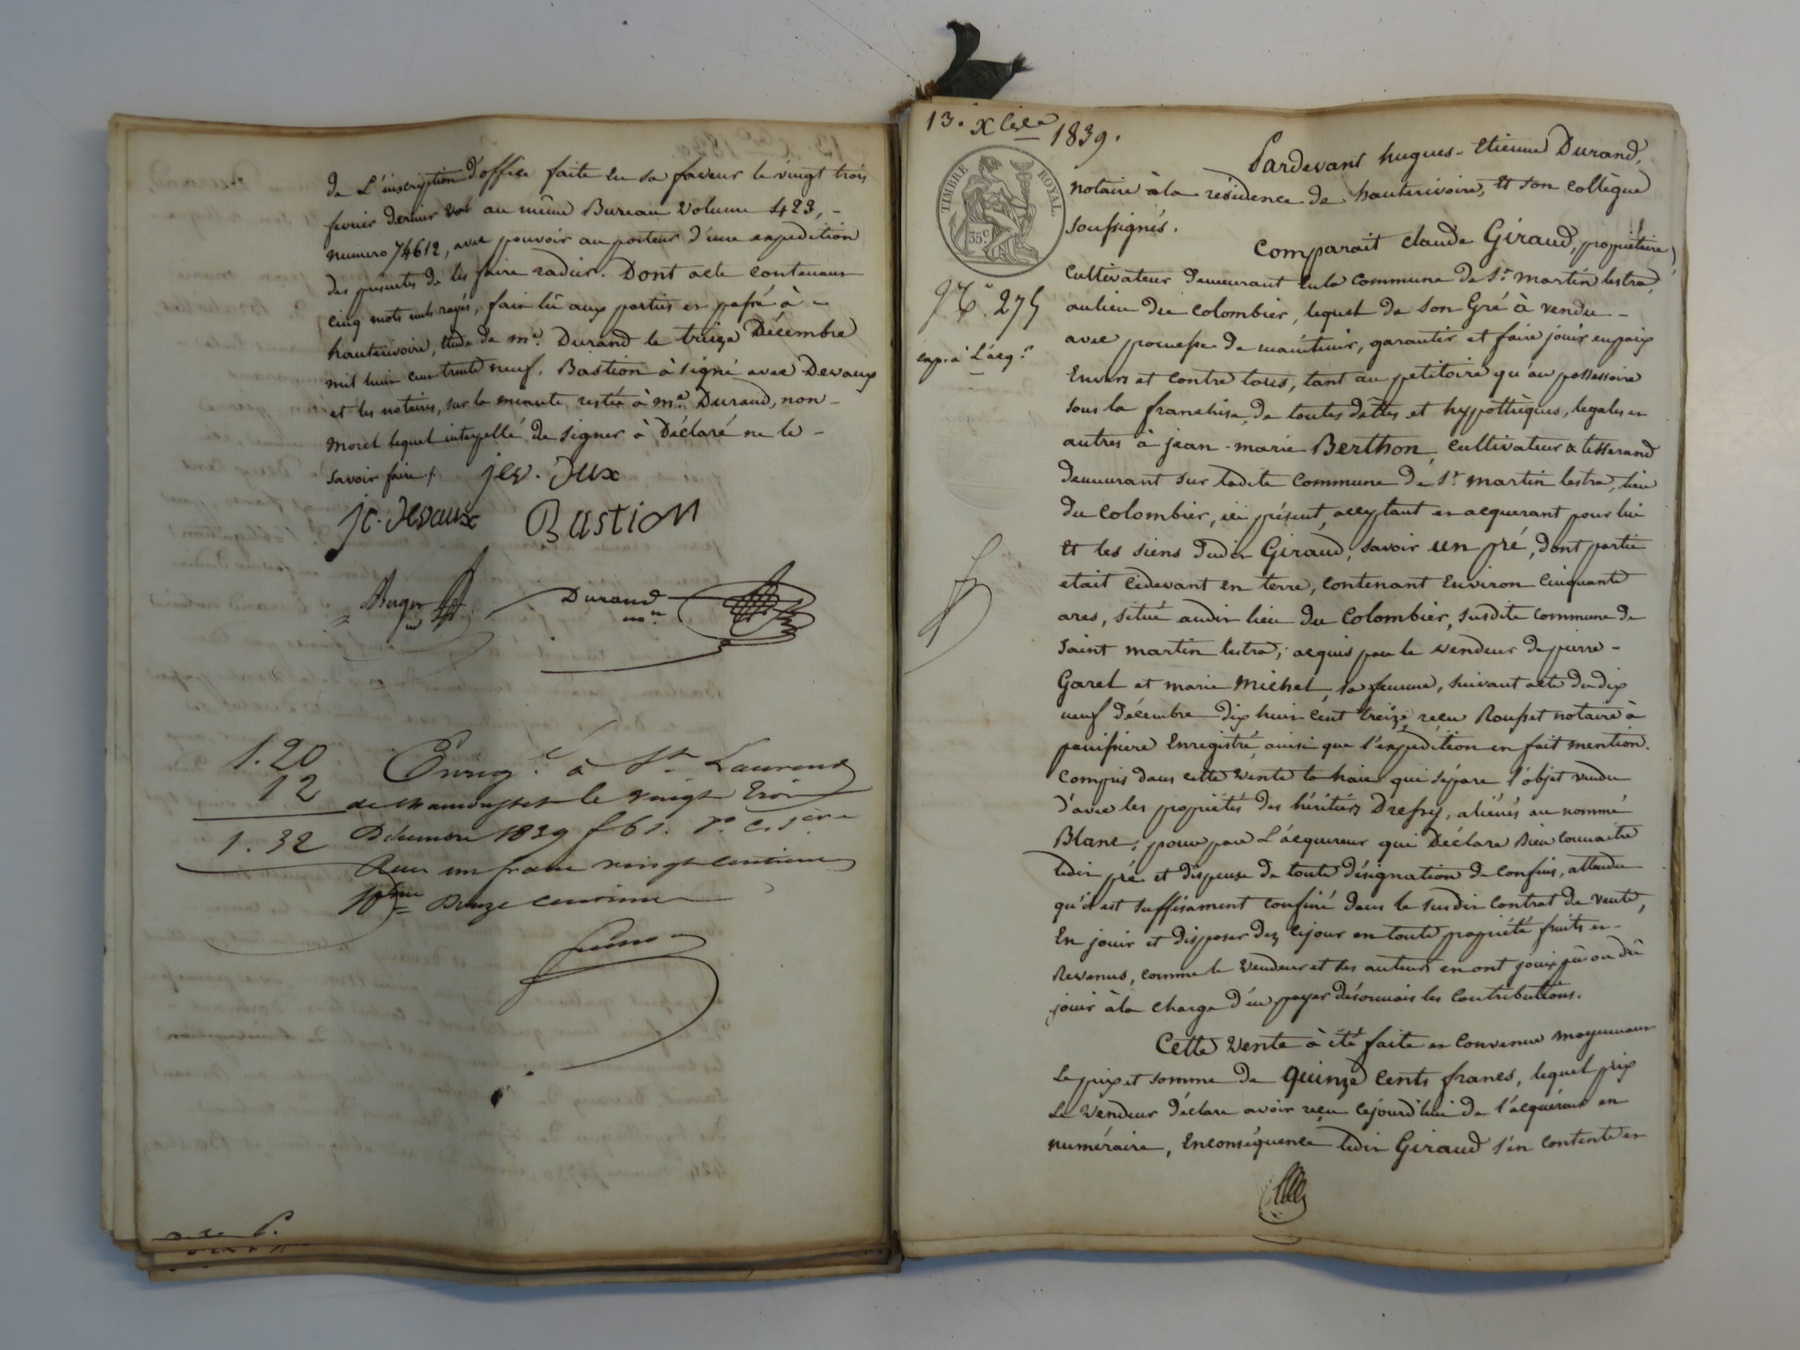 de L'inscription d'office faite en sa faveur le vingt trois
fevrier dernier vol au même Bureau volume 423, -
numero 74612, avec pouvoir au porteur d'une expedition
des presentes de les faire radier. Dont acte contenant
cinq mots nuls rayés, fait lû aux parties et passé à -
hauterivoire, étude de me. Durand le treize Décembre
mil huit cent trente neuf. Bastion à signé avec Devaux
et les notaires, sur la minute restée à me. Durand, non-
morel lequel interpellé de signer à Déclaré ne le -
savoir faire /.
jc. devaux Bastion
Durand
nre
1.20
12
1.32
Enreg.é à St Laurent
de chamousset le vingt trois
Décembre 1839 f 61. Ro c. 1ere
Reçu un franc vingt centimes
10eme Douze centimes
13. Xbre 1839.
TIMBRE ROYAL
35c
No. 275
exp. à L'acq.r
Pardevant hugues-Etienne Durand,
notaire à la résidence de hauterivoire, Et son collègue
soussignés.
Comparait claude Giraud, propriétaire
cultivateur demeurant en la commune de St martin lestra,
au lieu du colombier, lequel de son Gré à vendu -
avec promesse de maintenir, garantir et faire jouir en paix
Envers et contre tous, tant au petitoire qu'au possessoire
sous la franchise de toutes dêttes et hypothèques, legales et
autres à jean-marie Berthon, cultivateur & tisserand
demeurant sur ladite commune de St martin lestra, lieu
du colombier, ici présent, acceptant et acquerant pour lui
Et les siens dudit Giraud, savoir un pré, dont partie
etait cidevant en terre, contenant Environ cinquante
ares, situé audit lieu du Colombier, susdite commune de
Saint martin lestra, acquis par le vendeur de pierre -
Garel et marie Michel sa femme, suivant acte du dix
neuf décembre dix huit cent treize, reçu Rousset notaire à
panissiere Enregistré, ainsi que l'expédition en fait mention.
compris dans cette vente la haie qui sépare l'objet vendu
d'avec les propriétés des héritiers Drefsy, aliénés au nommé
Blanc, pour par L'acquereur qui Déclare Bien connaitre
ledit pré et dispense de toute désignation de confins, attendu
qu'il est suffisament confiné dans le susdit contrat de vente,
En jouir et disposer dez cejour en toute propriété fruits et -
Revenus, comme le vendeur et ses auteurs en ont joui, pû ou dû
jouir à la charge d'en payer désormais les Contributions.
Cette vente à été faite et convenue moyennant
Le prix et somme de quinze cents francs, lequel prix
Le vendeur déclare avoir reçu cejourd'hui de l'acquéreur en
numéraire, En conséquence ledit Giraud s'en contente et